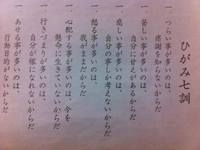 ひがみ七訓
一、つらい事が多いのは、
感謝を知らないからだ
一、苦しい事が多いのは、
自分に甘えがあるからだ
一、悲しい事が多いのは、
自分の事しか考えないからだ
一、怒る事が多いのは、
我がままだからだ
一、心配する事が多いのは、今を
懸命に生きていないからだ
一、行きづまりが多いのは、
自分が裸になれないからだ
一、あせる事が多いのは、
行動目的がないからだ